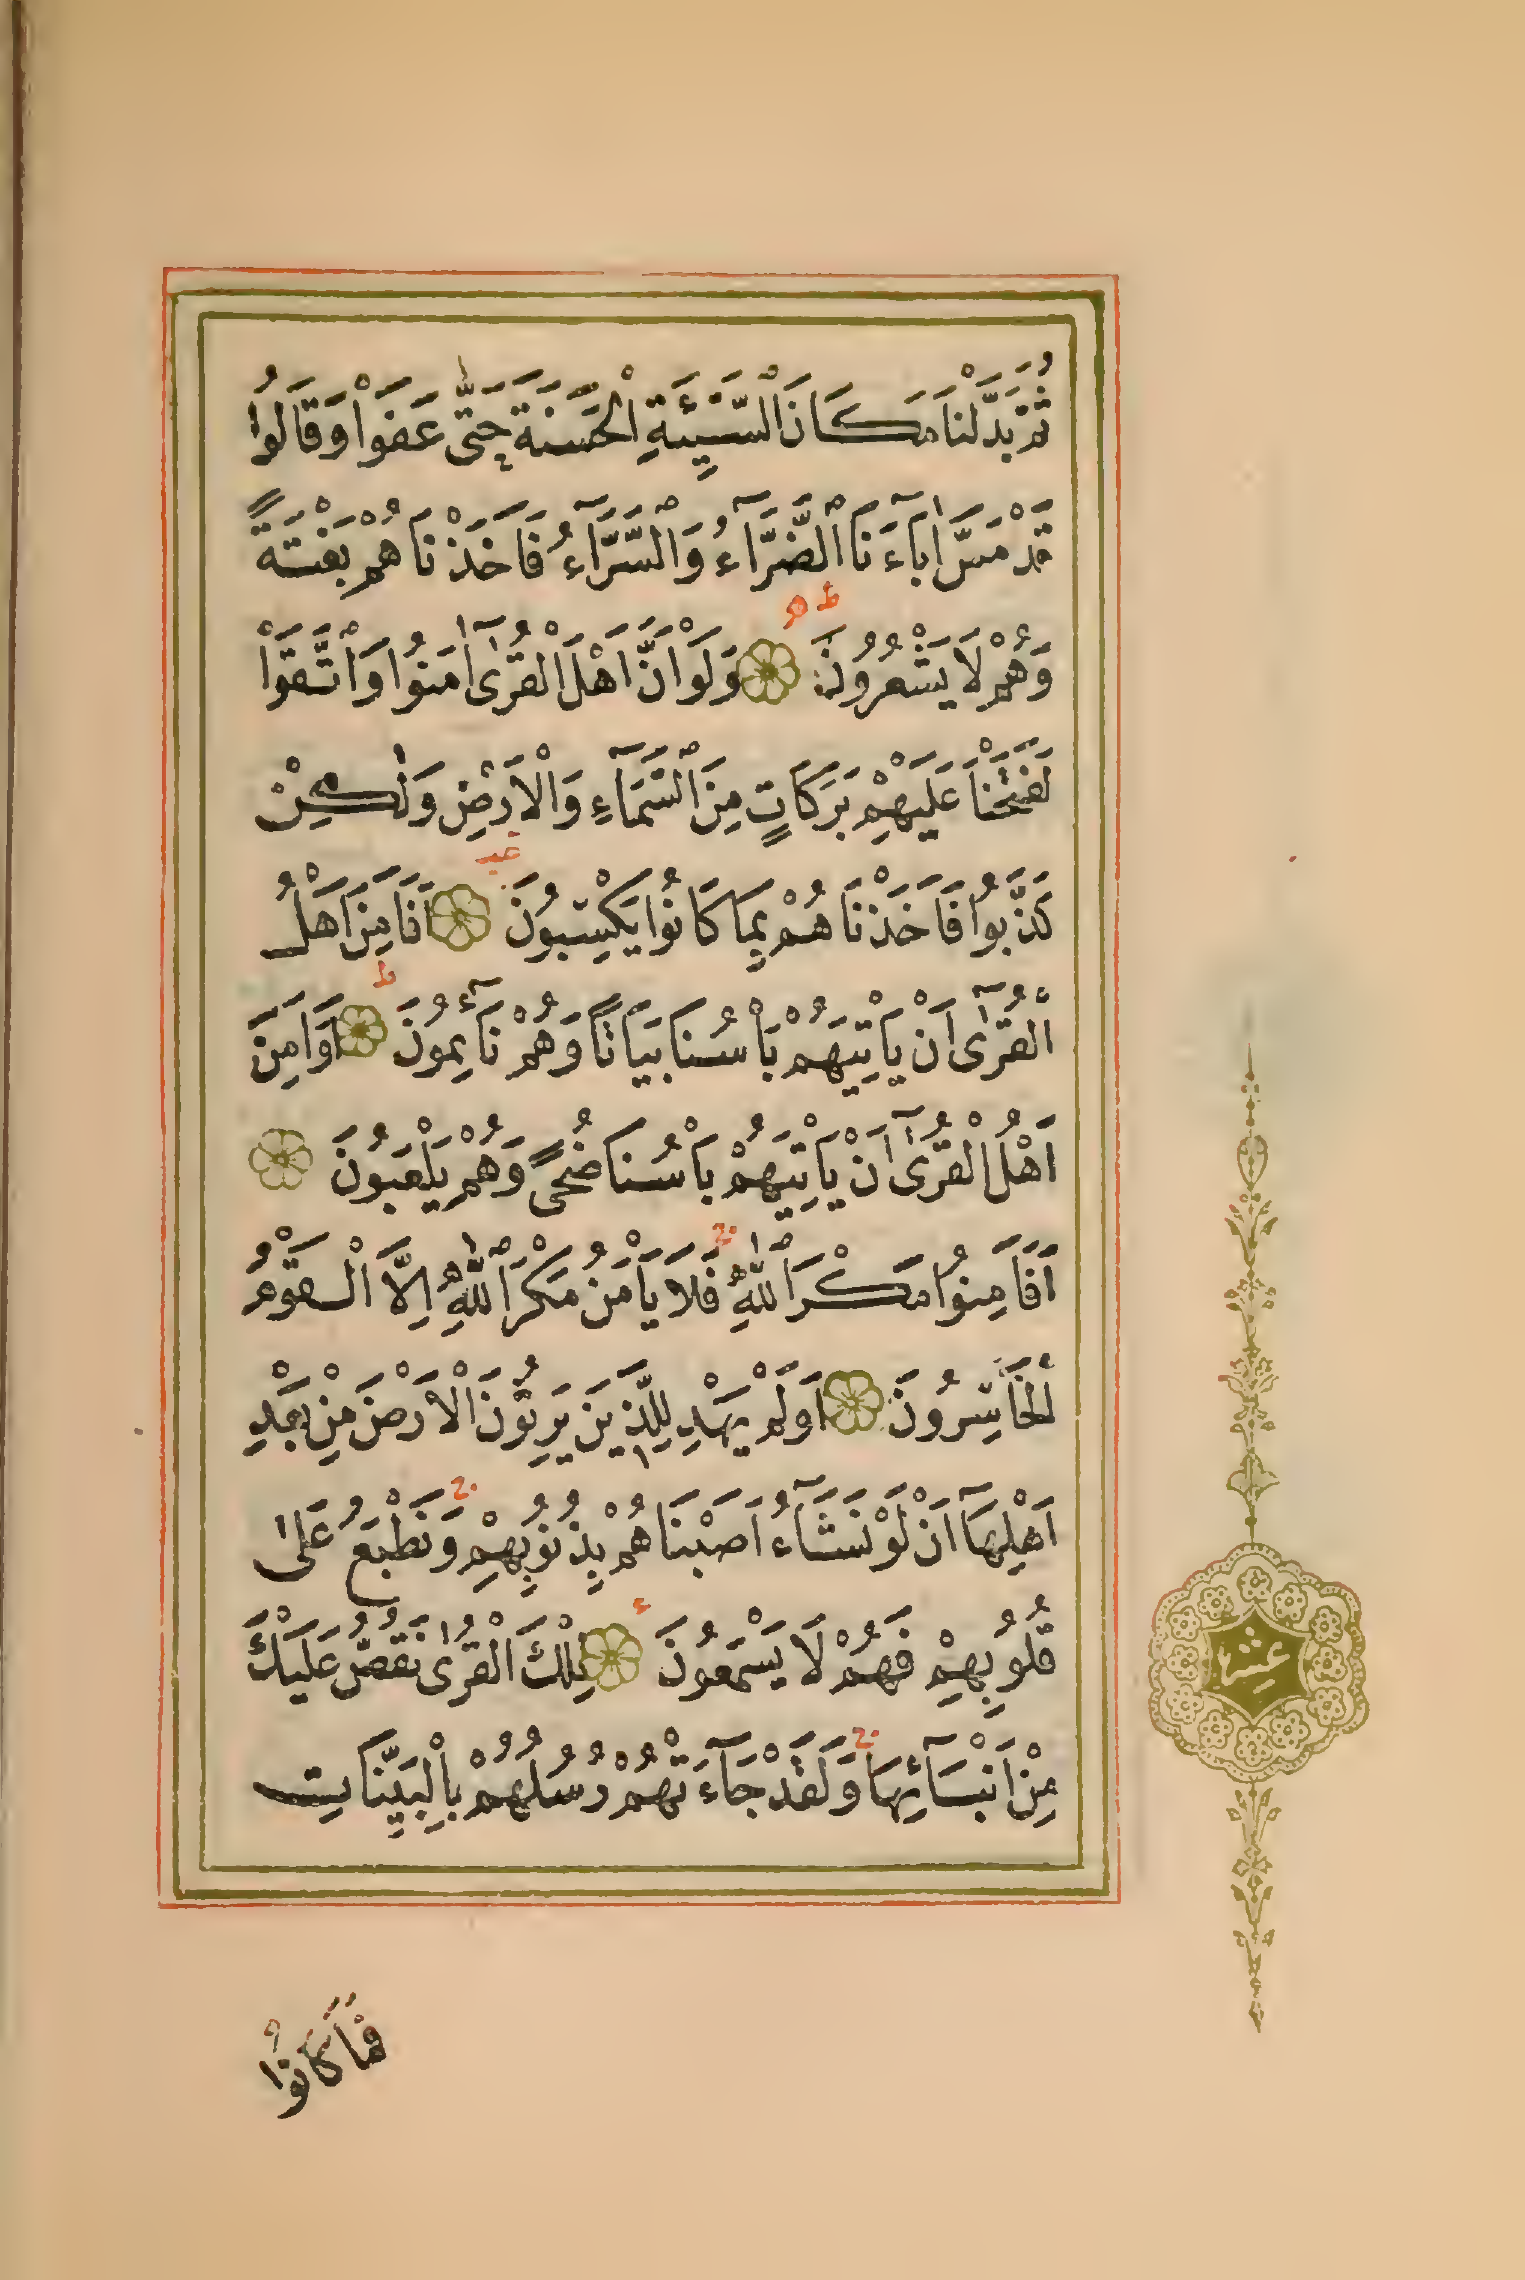 ثُمَّ بَدَّلْنَا مَكَانَ السَّيِّئَةِ الْحَسَنَةَ حَتّٰى عَفَوْا وَقَالُوا
قَدْ مَسَّ اٰبَآءَنَا الضَّرَّآءُ وَالسَّرَّآءُ فَاَخَذْنَاهُمْ بَغْتَةً
وَهُمْ لَا يَشْعُرُونَ وَلَوْ اَنَّ اَهْلَ الْقُرٰٓى اٰمَنُوا وَاتَّقَوْا
لَفَتَحْنَا عَلَيْهِمْ بَرَكَاتٍ مِنَ السَّمَآءِ وَالْاَرْضِ وَلٰكِنْ
كَذَّبُوا فَاَخَذْنَاهُمْ بِمَا كَانُوا يَكْسِبُونَ اَفَاَمِنَ اَهْلُ
الْقُرٰٓى اَنْ يَاْتِيَهُمْ بَاْسُنَا بَيَاتًا وَهُمْ نَآئِمُونَ اَوَاَمِنَ
اَهْلُ الْقُرٰٓى اَنْ يَاْتِيَهُمْ بَاْسُنَا ضُحًى وَهُمْ يَلْعَبُونَ
اَفَاَمِنُوا مَكْرَ اللّٰهِ فَلَا يَاْمَنُ مَكْرَ اللّٰهِ اِلَّا الْقَوْمُ
الْخَاسِرُونَ اَوَلَمْ يَهْدِ لِلَّذِينَ يَرِثُونَ الْاَرْضَ مِنْ بَعْدِ
اَهْلِهَآ اَنْ لَوْ نَشَآءُ اَصَبْنَاهُمْ بِذُنُوبِهِمْ وَنَطْبَعُ عَلٰى
قُلُوبِهِمْ فَهُمْ لَا يَسْمَعُونَ تِلْكَ الْقُرٰى نَقُصُّ عَلَيْكَ
مِنْ اَنْبَآئِهَا وَلَقَدْ جَآءَتْهُمْ رُسُلُهُمْ بِالْبَيِّنَاتِ
عشر
فَمَا كَانُوا